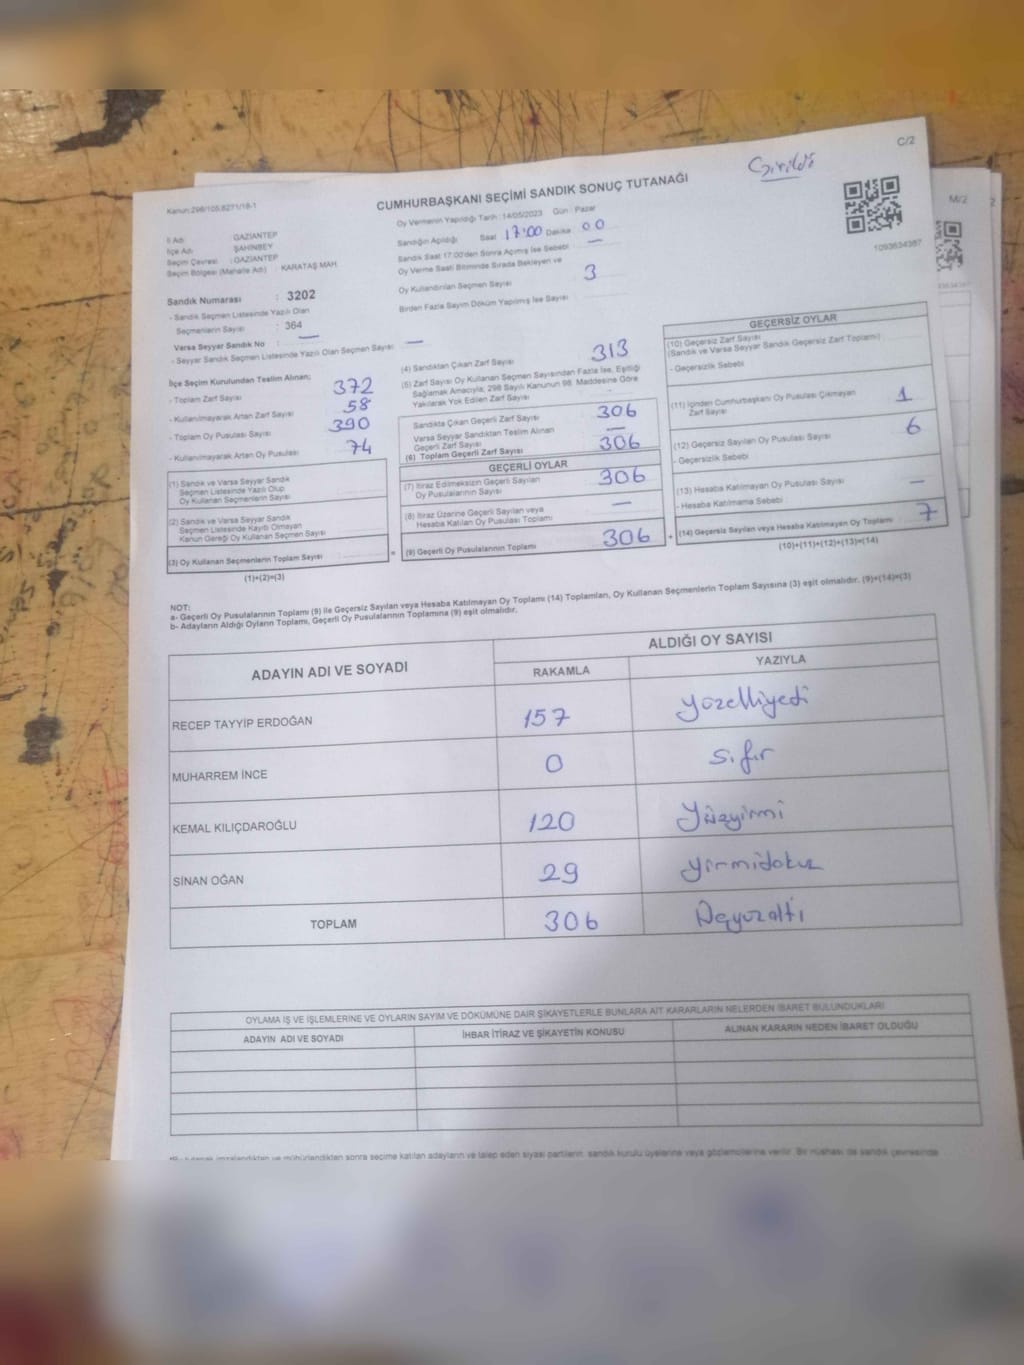 C/2
Girildi
M/2
Kanun:298/105,6271/18-1
CUMHURBAŞKANI SEÇİMİ SANDIK SONUÇ TUTANAĞI
1093634387
İl Adı : GAZİANTEP
İlçe Adı : ŞAHİNBEY
Seçim Çevresi : GAZİANTEP
Seçim Bölgesi (Mahalle Adı) : KARATAŞ MAH.
Sandık Numarası : 3202
- Sandık Seçmen Listesinde Yazılı Olan
Seçmenlerin Sayısı : 364
Varsa Seyyar Sandık No : —
- Seyyar Sandık Seçmen Listesinde Yazılı Olan Seçmen Sayısı : —
Oy Vermenin Yapıldığı Tarih : 14/05/2023 Gün : Pazar
Sandığın Açıldığı Saat 17:00 Dakika 00
Sandık Saat 17:00'den Sonra Açılmış İse Sebebi —
Oy Verme Saati Bitiminde Sırada Bekleyen ve
Oy Kullandırılan Seçmen Sayısı 3
Birden Fazla Sayım Döküm Yapılmış İse Sayısı
İlçe Seçim Kurulundan Teslim Alınan;
- Toplam Zarf Sayısı 372
- Kullanılmayarak Artan Zarf Sayısı 58
- Toplam Oy Pusulası Sayısı 390
- Kullanılmayarak Artan Oy Pusulası 74
(1) Sandık ve Varsa Seyyar Sandık
Seçmen Listesinde Yazılı Olup
Oy Kullanan Seçmenlerin Sayısı
(2) Sandık ve Varsa Seyyar Sandık
Seçmen Listesinde Kayıtlı Olmayan
Kanun Gereği Oy Kullanan Seçmen Sayısı
(3) Oy Kullanan Seçmenlerin Toplam Sayısı
(1)+(2)=(3)
(4) Sandıktan Çıkan Zarf Sayısı 313
(5) Zarf Sayısı Oy Kullanan Seçmen Sayısından Fazla İse, Eşitliği
Sağlamak Amacıyla, 298 Sayılı Kanunun 98. Maddesine Göre
Yakılarak Yok Edilen Zarf Sayısı
Sandıkta Çıkan Geçerli Zarf Sayısı 306
Varsa Seyyar Sandıktan Teslim Alınan
Geçerli Zarf Sayısı —
(6) Toplam Geçerli Zarf Sayısı 306
GEÇERLİ OYLAR
(7) İtiraz Edilmeksizin Geçerli Sayılan
Oy Pusulalarının Sayısı 306
(8) İtiraz Üzerine Geçerli Sayılan veya
Hesaba Katılan Oy Pusulası Toplamı —
= (9) Geçerli Oy Pusulalarının Toplamı 306
GEÇERSİZ OYLAR
(10) Geçersiz Zarf Sayısı
(Sandık ve Varsa Seyyar Sandık Geçersiz Zarf Toplamı)
- Geçersizlik Sebebi
(11) İçinden Cumhurbaşkanı Oy Pusulası Çıkmayan
Zarf Sayısı 1
(12) Geçersiz Sayılan Oy Pusulası Sayısı 6
- Geçersizlik Sebebi
(13) Hesaba Katılmayan Oy Pusulası Sayısı —
- Hesaba Katılmama Sebebi
+ (14) Geçersiz Sayılan veya Hesaba Katılmayan Oy Toplamı 7
(10)+(11)+(12)+(13)=(14)
NOT:
a- Geçerli Oy Pusulalarının Toplamı (9) ile Geçersiz Sayılan veya Hesaba Katılmayan Oy Toplamı (14) Toplamları, Oy Kullanan Seçmenlerin Toplam Sayısına (3) eşit olmalıdır. (9)+(14)=(3)
b- Adayların Aldığı Oyların Toplamı, Geçerli Oy Pusulalarının Toplamına (9) eşit olmalıdır.
ADAYIN ADI VE SOYADI ALDIĞI OY SAYISI
RAKAMLA YAZIYLA
RECEP TAYYİP ERDOĞAN 157 yüzelliyedi
MUHARREM İNCE 0 sıfır
KEMAL KILIÇDAROĞLU 120 yüzyirmi
SİNAN OĞAN 29 yirmidokuz
TOPLAM 306 üçyüzaltı
OYLAMA İŞ VE İŞLEMLERİNE VE OYLARIN SAYIM VE DÖKÜMÜNE DAİR ŞİKAYETLERLE BUNLARA AİT KARARLARIN NELERDEN İBARET BULUNDUKLARI
ADAYIN ADI VE SOYADI İHBAR İTİRAZ VE ŞİKAYETİN KONUSU ALINAN KARARIN NEDEN İBARET OLDUĞU
imzalandıktan ve mühürlendikten sonra seçime katılan adayların ve talep eden siyasi partilerin, sandık kurulu üyelerine veya gözlemcilerine verilir. Bir nüshası da sandık çevresinde